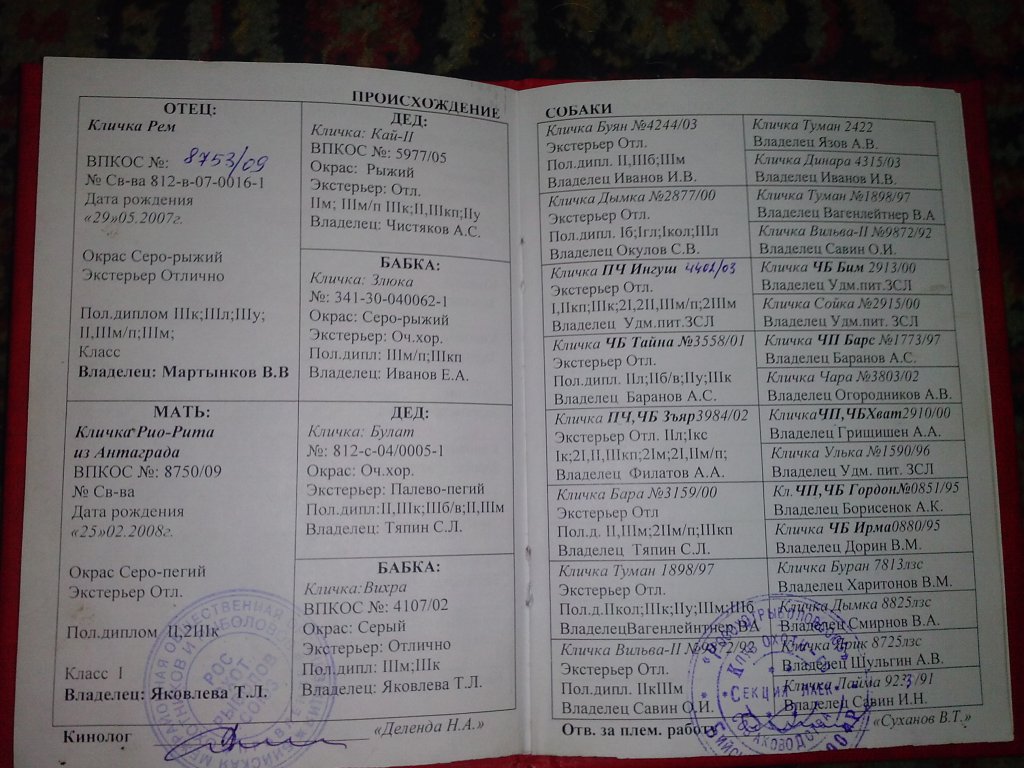 ПРОИСХОЖДЕНИЕ
ОТЕЦ:
Кличка Рем
ВПКОС №: 8753/09
№ Св-ва 812-в-07-0016-1
Дата рождения
«29»05.2007г.
Окрас Серо-рыжий
Экстерьер Отлично
Пол.диплом IIIк;IIIл;IIIу;
II,IIIм/п;IIIм;
Класс
Владелец: Мартынков В.В
ДЕД:
Кличка: Кай-II
ВПКОС №: 5977/05
Окрас: Рыжий
Экстерьер: Отл.
IIм; IIIм/п IIIк;II,IIIкп;IIу
Владелец: Чистяков А.С.
БАБКА:
Кличка: Злюка
№: 341-30-040062-1
Окрас: Серо-рыжий
Экстерьер: Оч.хор.
Пол.дипл: IIIм/п;IIIкп
Владелец: Иванов Е.А.
МАТЬ:
Кличка Рио-Рита
из Антаграда
ВПКОС №: 8750/09
№ Св-ва
Дата рождения
«25»02.2008г.
Окрас Серо-пегий
Экстерьер Отл.
Пол.диплом II,2IIIк
Класс I
Владелец: Яковлева Т.Л.
ДЕД:
Кличка: Булат
№: 812-с-04/0005-1
Окрас: Оч.хор.
Экстерьер: Палево-пегий
Пол.дипл:II,IIIк;IIIб/в;II,IIIм
Владелец: Тяпин С.Л.
БАБКА:
Кличка:Вихра
ВПКОС №: 4107/02
Окрас: Серый
Экстерьер: Отлично
Пол.дипл: IIIм;IIIк
Владелец: Яковлева Т.Л.
Кинолог «Деленда Н.А.»
РОС
СОЮЗ
СОБАКИ
Кличка Буян №4244/03
Экстерьер Отл.
Пол.дипл. II,IIIб;IIIм
Владелец Иванов И.В.
Кличка Дымка №2877/00
Экстерьер Отл.
Пол.дипл. Iб;Iгл;Iкол;IIIл
Владелец Окулов С.В.
Кличка ПЧ Ингуш 4402/03
Экстерьер Отл.
I,IIкп;IIIк;2I,2II,IIIм/п;2IIIм
Владелец Удм.пит.ЗСЛ
Кличка ЧБ Тайна №3558/01
Экстерьер Отл.
Пол.дипл. IIл;IIб/в;IIу;IIIк
Владелец Баранов А.С.
Кличка ПЧ,ЧБ Зъяр3984/02
Экстерьер Отл. IIл;Iкс
Iк;2I,II,IIIкп;2Iм;2I,IIм/п;
Владелец Филатов А.А.
Кличка Бара №3159/00
Экстерьер Отл
Пол.д. II,IIIм;2IIм/п;IIIкп
Владелец Тяпин С.Л.
Кличка Туман 1898/97
Экстерьер Отл.
Пол.д.IIкол;IIIк;IIу;IIIм;IIIб
ВладелецВагенлейнтнер ВА
Кличка Вильва-II №9872/92
Экстерьер Отл.
Пол.дипл. IIкIIIм
Владелец Савин О.И.
Кличка Туман 2422
Владелец Язов А.В.
Кличка Динара 4315/03
Владелец Иванов И.В.
Кличка Туман №1898/97
Владелец Вагенлейтнер В.А
Кличка Вильва-II №9872/92
Владелец Савин О.И.
Кличка ЧБ Бим 2913/00
Владелец Удм.пит.ЗСЛ
Кличка Сойка №2915/00
Владелец Удм.пит. ЗСЛ
Кличка ЧП Барс №1773/97
Владелец Баранов А.С.
Кличка Чара №3803/02
Владелец Огородников А.В.
КличкаЧП,ЧБХват2910/00
Владелец Гришишен А.А.
Кличка Улька №1590/96
Владелец Удм. пит. ЗСЛ
Кл.ЧП,ЧБ Гордон№0851/95
Владелец Борисенок А.К.
Кличка ЧБ Ирма0880/95
Владелец Дорин В.М.
Кличка Буран 7813лзс
Владелец Харитонов В.М.
Кличка Дымка 8825лзс
Владелец Смирнов В.А.
Кличка Ярик 8725лзс
Владелец Шульгин А.В.
Кличка Лайма
Владелец Савин И.Н.
Отв. за плем. работу «Суханов В.Т.»
Секция лаек